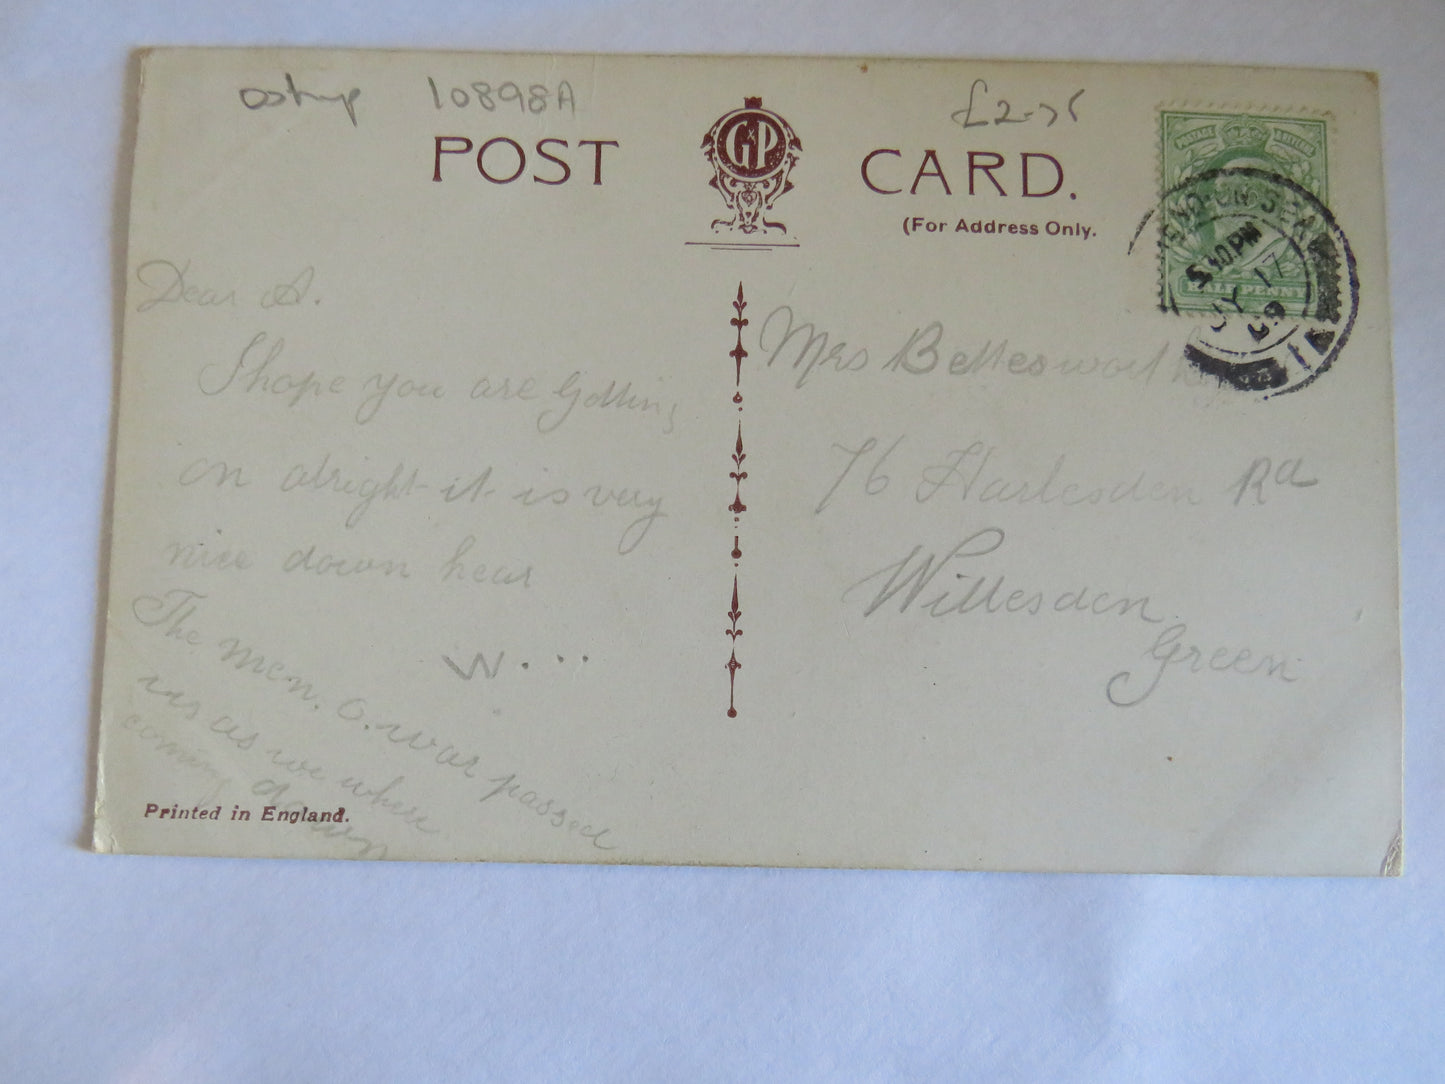 10898A
£2-75
POST CARD.
G&P
(For Address Only.
POSTAGE REVENUE
END-ON-SEA
5.30PM
JY 17
09
HALF PENNY
Dear A.
I hope you are getting
on alright it is very
nice down hear
W...
The men. o. war passed
us as we where
coming down
Mrs Bettesworth
76 Harlesden Rd
Willesden
Green
Printed in England.